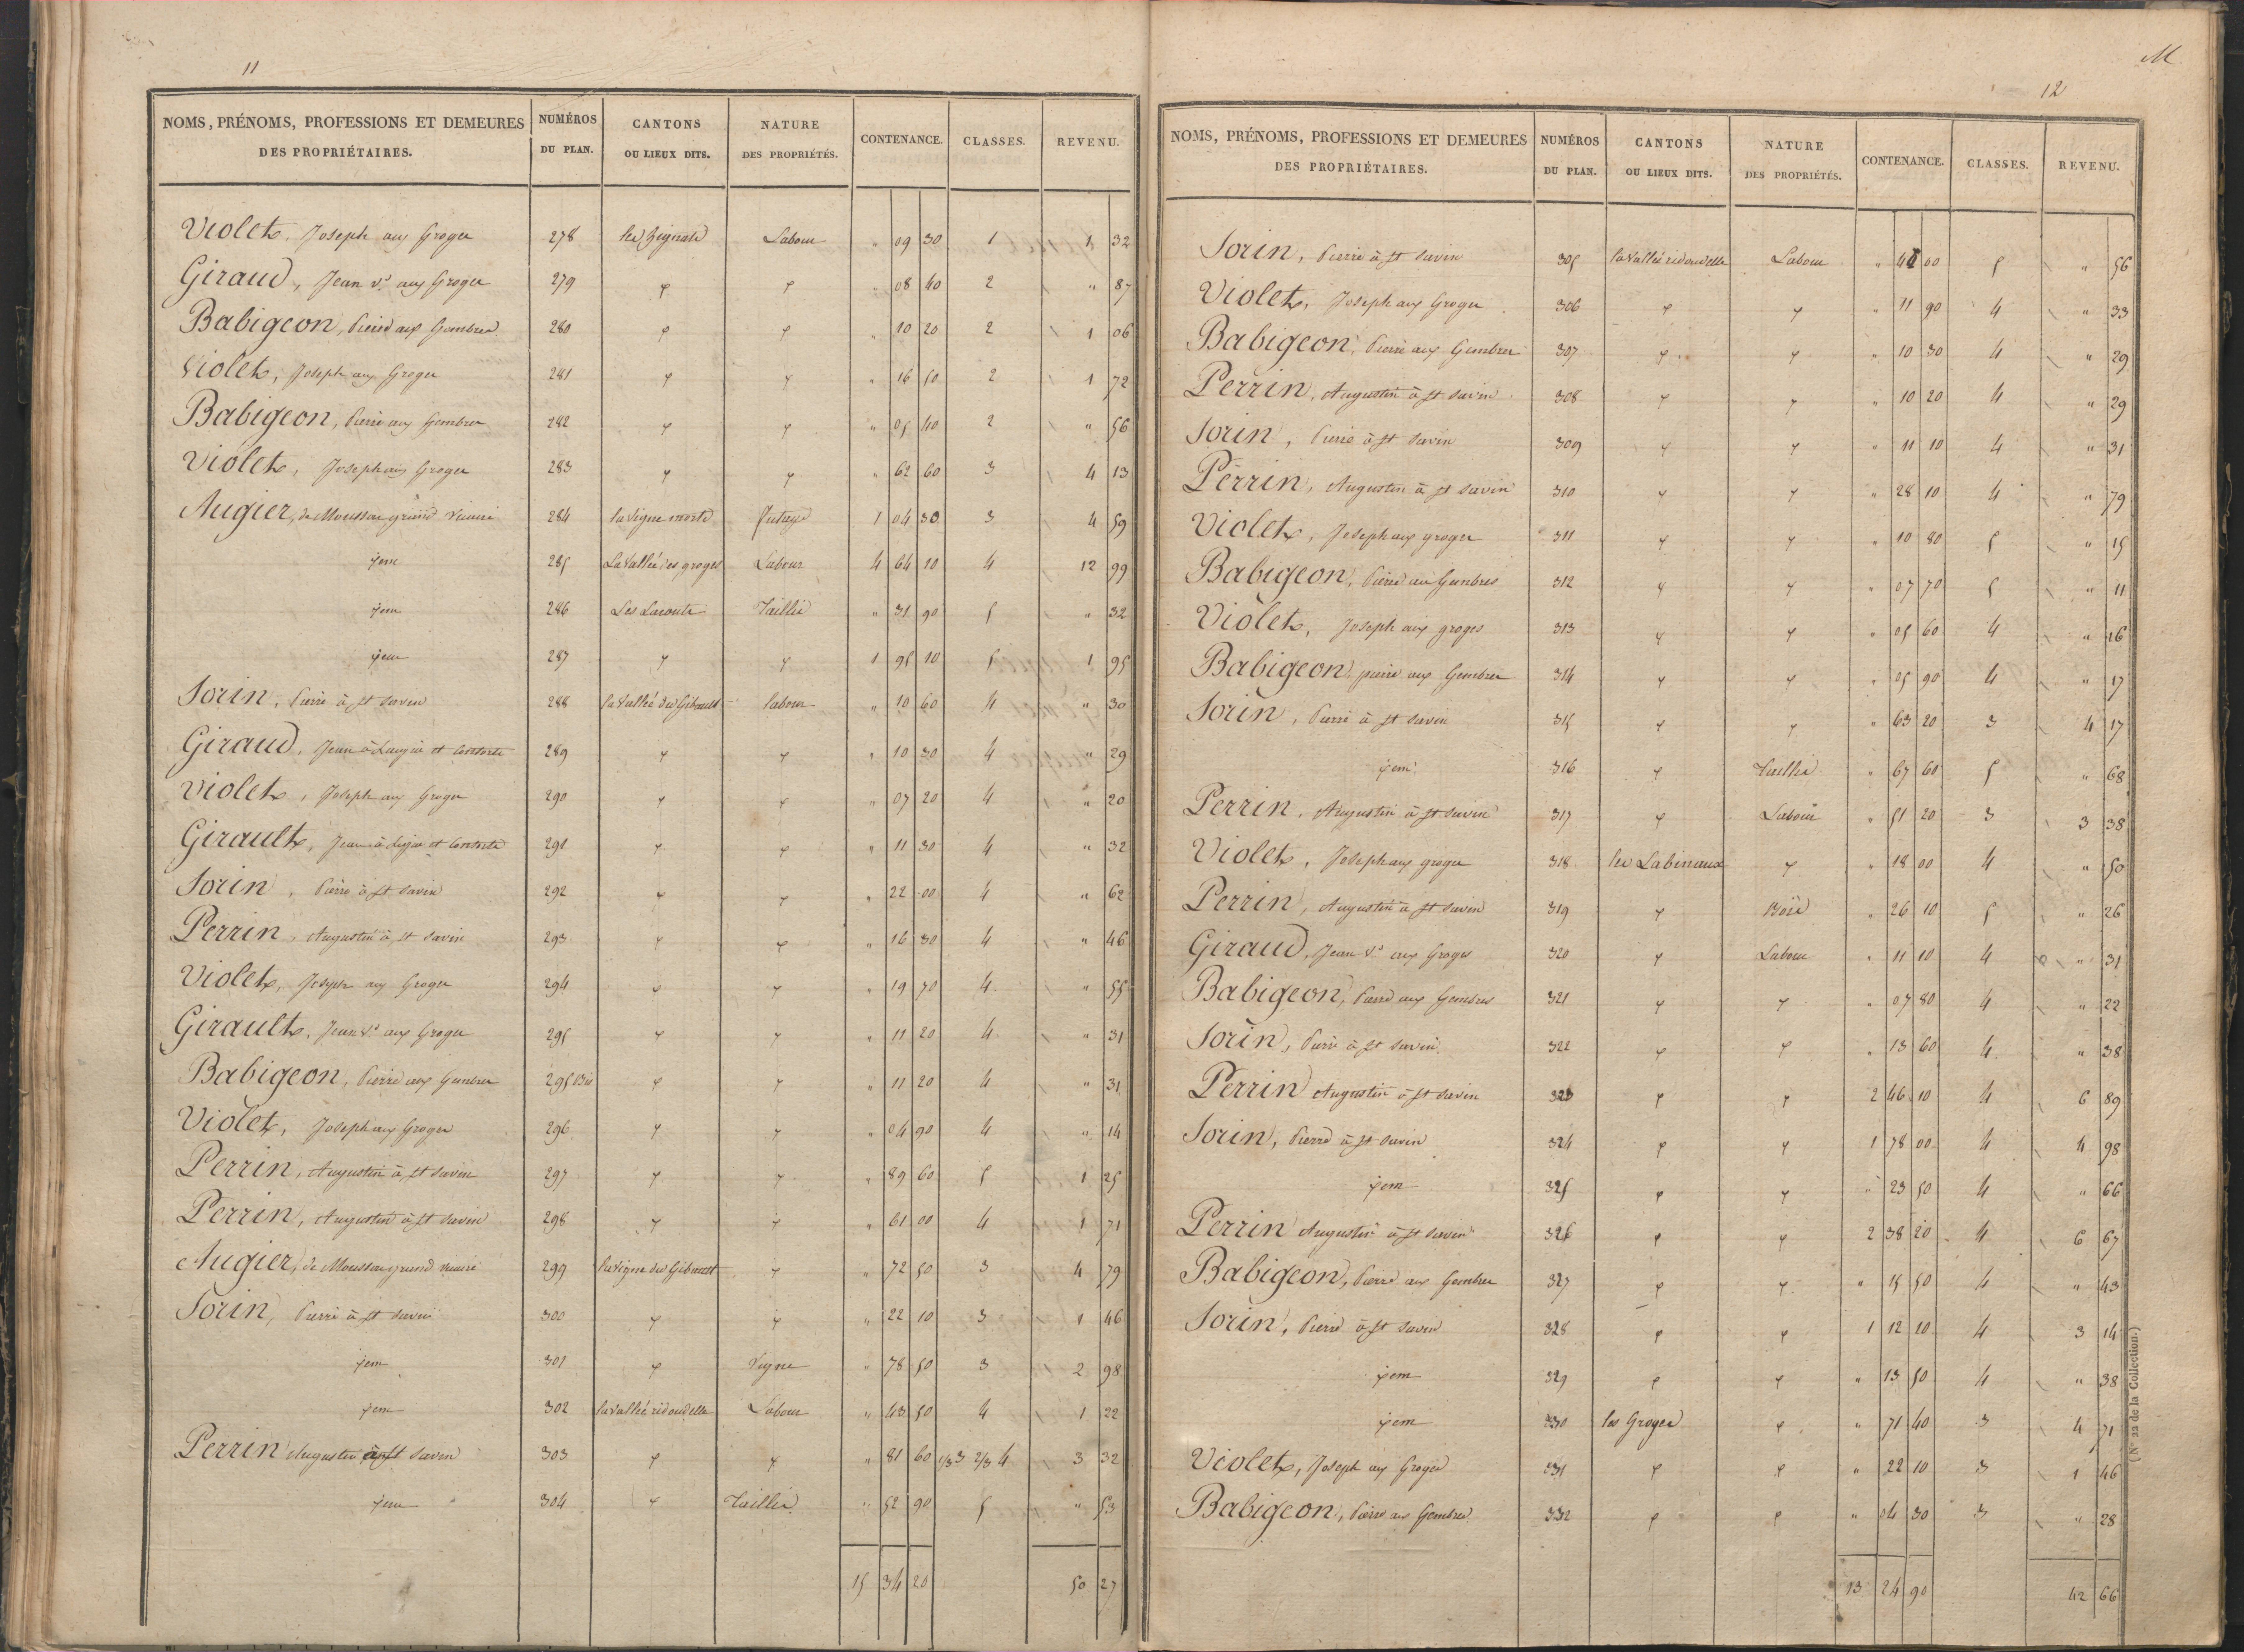 11
NOMS, PRÉNOMS, PROFESSIONS ET DEMEURES DES PROPRIÉTAIRES. NUMÉROS DU PLAN. CANTONS OU LIEUX DITS. NATURE DES PROPRIÉTÉS. CONTENANCE. CLASSES. REVENU.
Violet, Joseph aux Groges 278 Labour " 09 30 1 1 32
Giraud, Jean V.s aux Groges 279 " 08 40 2 " 87
Babigeon, Pierre aux Gembres 280 " 10 20 2 1 06
Violet, Joseph aux Groges 281 " 16 50 2 1 72
Babigeon, Pierre aux Gembres 282 " 05 40 2 " 56
Violet, Joseph aux Groges 283 " 62 60 3 4 13
Augier, de Moussac grand vicaire 284 la Vigne morte futaye 1 04 30 3 4 59
ydem 285 La Vallée des groges Labour 4 64 10 4 12 99
ydem 286 Les Lacoute Taillis " 31 90 5 " 32
ydem 287 1 95 10 5 1 95
Sorin, Pierre à St Savin 288 la Vallée des Gibault labour " 10 60 4 " 30
Giraud, Jean à et consorts 289 " 10 30 4 " 29
Violet, Joseph aux Groges 290 " 07 20 4 " 20
Girault, Jean à et consorts 291 " 11 30 4 " 32
Sorin, Pierre à St Savin 292 " 22 00 4 " 62
Perrin, Augustin à St Savin 293 " 16 30 4 " 46
Violet, Joseph aux Groges 294 " 19 70 4 " 55
Girault, Jean V.s aux Groges 295 " 11 20 4 " 31
Babigeon, Pierre aux Gembres 295 Bis " 11 20 4 " 31
Violet, Joseph aux Groges 296 " 04 90 4 " 14
Perrin, Augustin à St Savin 297 " 89 60 5 1 25
Perrin, Augustin à St Savin 298 " 61 00 4 1 71
Augier, de Moussac grand vicaire 299 la Vigne des Gibault " 72 50 3 4 79
Sorin, Pierre à St Savin 300 " 22 10 3 1 46
ydem 301 Vigne " 78 50 3 2 98
ydem 302 la Vallée ridouelle Labour " 43 50 4 1 22
Perrin Augustin à St Savin 303 " 81 60 1/3 3 2/3 4 3 32
ydem 304 Taillis " 52 90 5 " 53
15 34 20 50 27
M
12
NOMS, PRÉNOMS, PROFESSIONS ET DEMEURES DES PROPRIÉTAIRES. NUMÉROS DU PLAN. CANTONS OU LIEUX DITS. NATURE DES PROPRIÉTÉS. CONTENANCE. CLASSES. REVENU.
Sorin, Pierre à St Savin 305 la Vallée ridouelle Labour " 00 5 " 56
Violet, Joseph aux Groges 306 " 11 90 4 " 33
Babigeon, Pierre aux Gembres 307 " 10 30 4 " 29
Perrin, Augustin à St Savin 308 " 10 20 4 " 29
Sorin, Pierre à St Savin 309 " 11 10 4 " 31
Perrin, Augustin à St Savin 310 " 28 10 4 " 79
Violet, Joseph aux groges 311 " 10 80 5 " 15
Babigeon, Pierre aux Gembres 312 " 07 70 5 " 11
Violet, Joseph aux groges 313 " 05 60 4 " 16
Babigeon, pierre aux Gembres 314 " 05 90 4 " 17
Sorin, Pierre à St Savin 315 " 63 20 3 4 17
ydem 316 Taillis " 67 60 5 " 68
Perrin, Augustin à St Savin 317 Labour " 51 20 3 3 38
Violet, Joseph aux groges 318 les Labinaux " 18 00 4 " 50
Perrin, Augustin à St Savin 319 Bois " 26 10 5 " 26
Giraud, Jean V.s aux Groges 320 Labour " 11 10 4 " 31
Babigeon, Pierre aux Gembres 321 " 07 80 4 " 22
Sorin, Pierre à St Savin 322 " 13 60 4 " 38
Perrin Augustin à St Savin 323 2 46 10 4 6 89
Sorin, Pierre à St Savin 324 1 78 00 4 4 98
ydem 325 " 23 50 4 " 66
Perrin Augustin à St Savin 326 2 38 20 4 6 67
Babigeon, Pierre aux Gembres 327 " 15 50 4 " 43
Sorin, Pierre à St Savin 328 1 12 10 4 3 14
ydem 329 " 13 50 4 " 38
ydem 330 les Groges " 71 40 3 4 71
Violet, Joseph aux Groges 331 " 22 10 3 1 46
Babigeon, Pierre aux Gembres 332 " 04 30 3 " 28
13 24 90 42 66
(N° 22 de la Collection.)